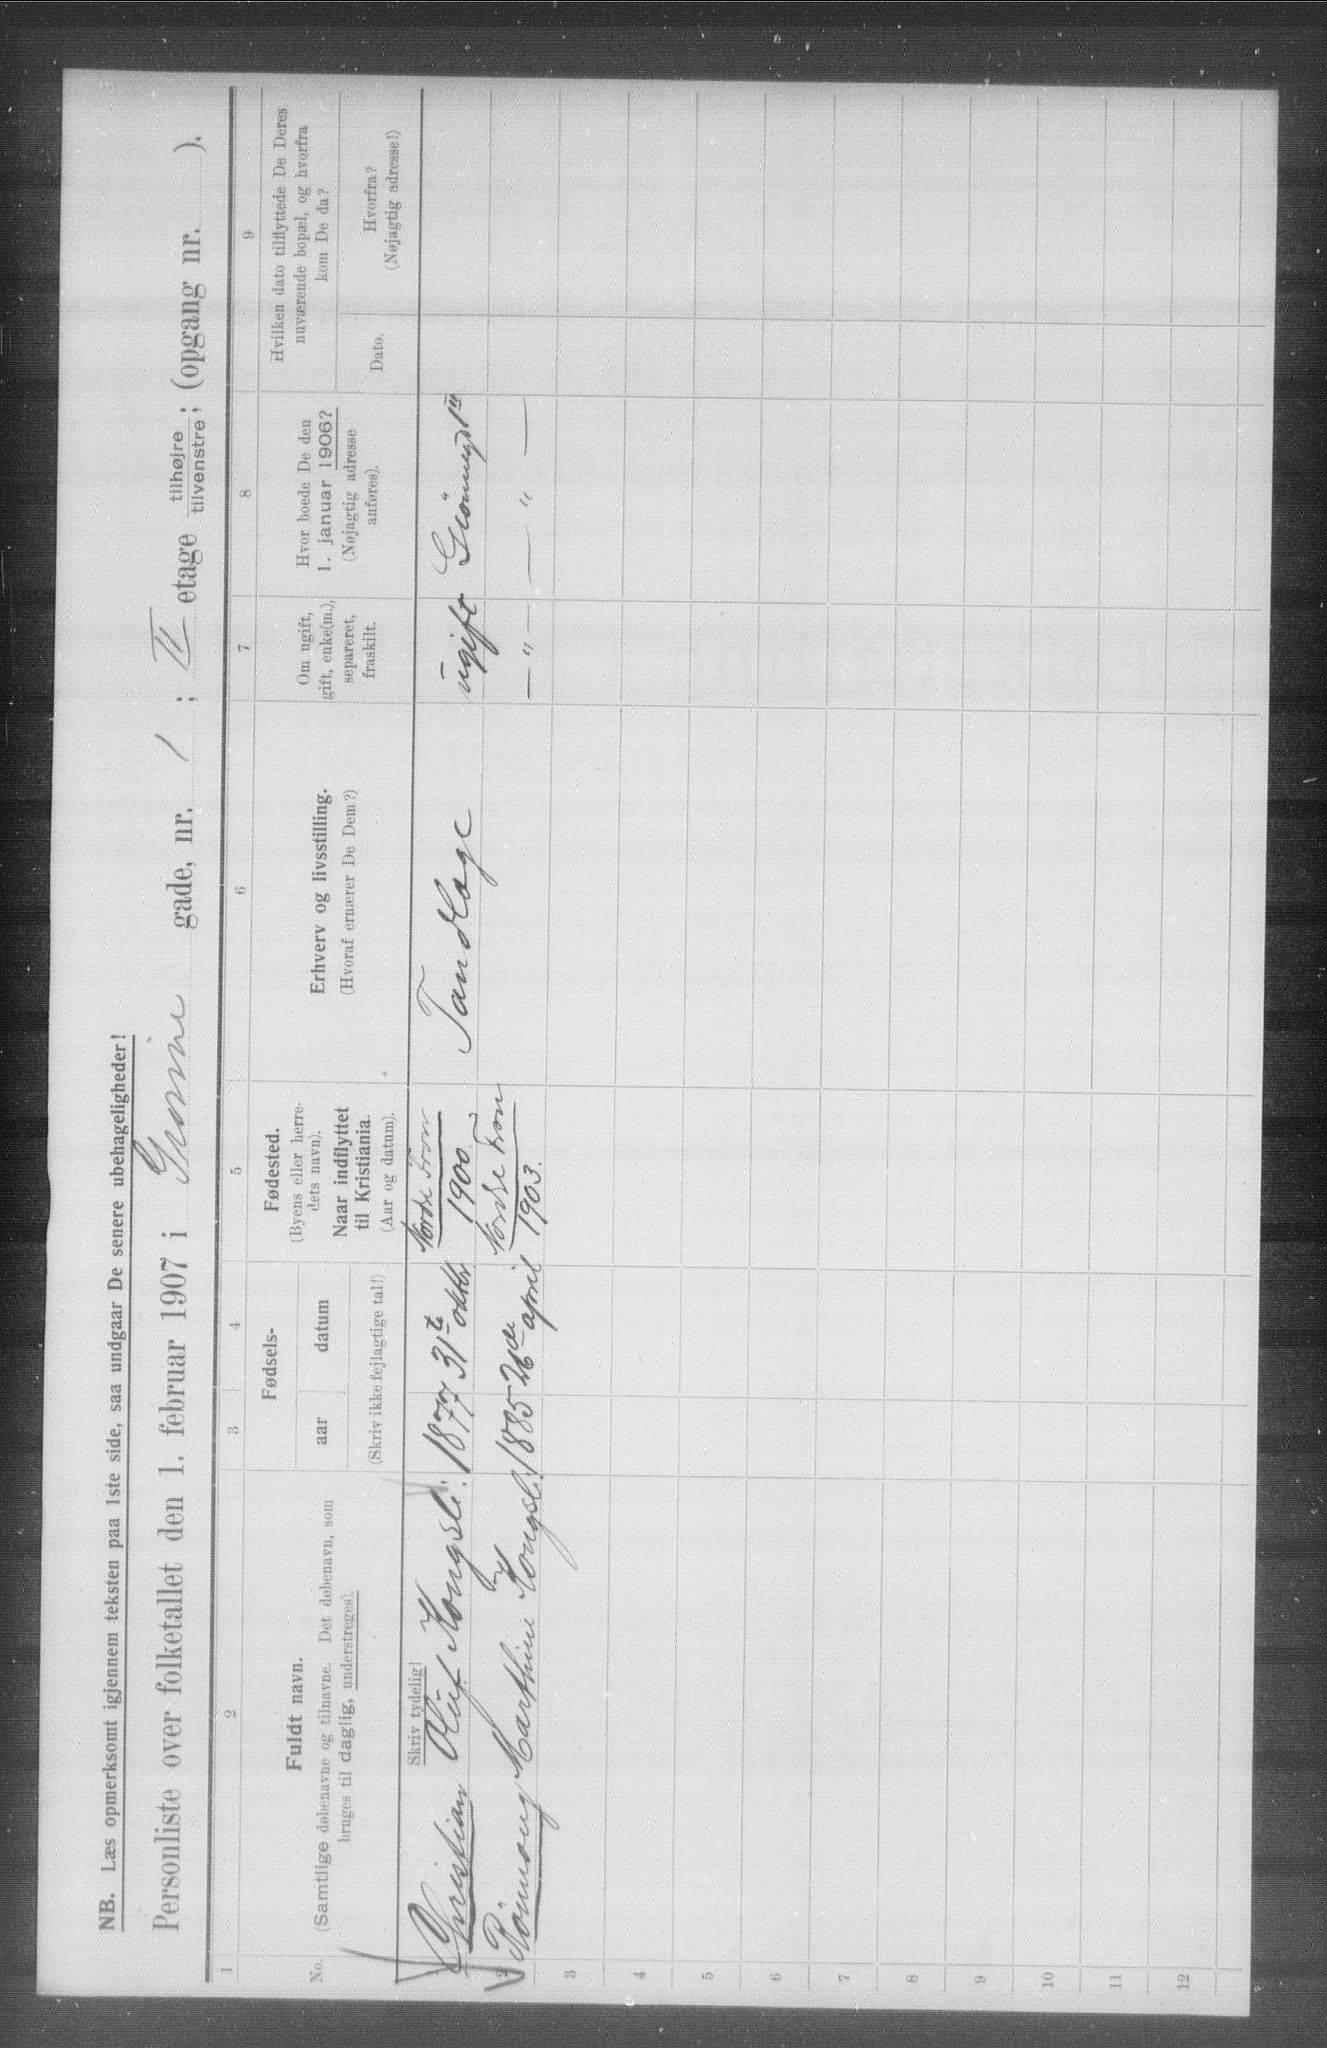 NB. Læs opmerksomt igjennem teksten paa 1ste side, saa undgaar De senere ubehageligheder!
Personliste over folketallet den 1. februar 1907 i Grønne gade, nr. 1 ; II etage tilhøjre tilvenstre; (opgang nr. ).
1 2 3 4 5 6 7 8 9
No.
Fuldt navn.
(Samtlige døbenavne og tilnavne. Det døbenavn, som
bruges til daglig, understreges).
Fødsels-
aar datum
(Skriv ikke fejlagtige tal!)
Fødested.
(Byens eller herre-
dets navn).
Naar indflyttet
til Kristiania.
(Aar og datum).
Erhverv og livsstilling.
(Hvoraf ernærer De Dem?)
Om ugift,
gift, enke(m.),
separeret,
fraskilt.
Hvor boede De den
1. januar 1906?
(Nøjagtig adresse
anføres).
Hvilken dato tilflyttede De Deres
nuværende bopæl, og hvorfra
kom De da?
Dato.
Hvorfra?
(Nøjagtig adresse!)
Skriv tydelig!
Christian Oluf Kongsli. 1877 31te oktbr Nordre Fron 1900 Tandlæge ugift
2 Rönnaug Marthine Kongsli. 1885 26de april Nordre Fron 1903. —„— —„—
3
4
5
6
7
8
9
10
11
12